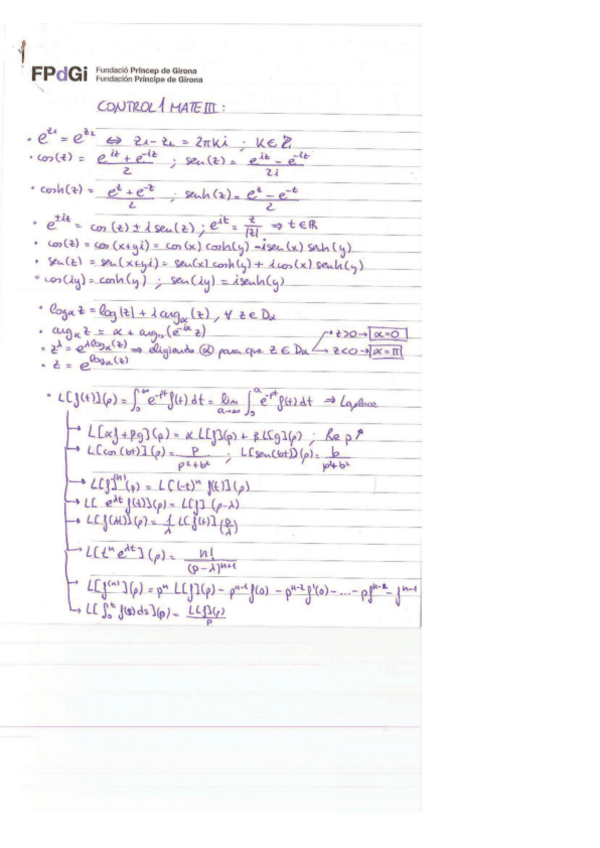 1
FPdGi Fundació Príncep de Girona
Fundación Príncipe de Girona
CONTROL 1 MATE III :
• e^{z₁} = e^{z₂} ⇔ z₁ - z₂ = 2πki ; k ∈ Z
• cos(z) = (e^{iz} + e^{-iz})/2 ; sen(z) = (e^{iz} - e^{-iz})/2i
• cosh(z) = (e^z + e^{-z})/2 ; senh(z) = (e^z - e^{-z})/2
• e^{±iz} = cos(z) ± i sen(z) ; e^{it} = z/|z| ⇒ t ∈ ℝ
• cos(z) = cos(x+yi) = cos(x) cosh(y) - i sen(x) senh(y)
• sen(z) = sen(x+yi) = sen(x) cosh(y) + i cos(x) senh(y)
• cos(iy) = cosh(y) ; sen(iy) = i senh(y)
• log_α z = log|z| + i arg_α(z), ∀ z ∈ D_α
• arg_α z = α + arg_0(e^{-iα} z)
• z^λ = e^{λ log_α(z)} ⇒ eligiendo α para que z ∈ D_α → z>0 → α=0
→ z<0 → α=π
• z = e^{log_α(z)}
• L[f(t)](p) = ∫_0^{+∞} e^{-pt} f(t) dt = lim_{a→∞} ∫_0^a e^{-pt} f(t) dt ⇒ Laplace
→ L[αf + βg](p) = α L[f](p) + β L[g](p) ; Re p ↑
→ L[cos(bt)](p) = p/(p²+b²) ; L[sen(bt)](p) = b/(p²+b²)
→ L[f]^{(n)}(p) = L[(-t)^n f(t)](p)
→ L[e^{λt} f(t)](p) = L[f](p-λ)
→ L[f(λt)](p) = 1/λ L[f(t)](p/λ)
→ L[t^n e^{λt}](p) = n!/(p-λ)^{n+1}
→ L[f^{(n)}](p) = p^n L[f](p) - p^{n-1} f(0) - p^{n-2} f'(0) - ... - p f^{n-2} - f^{n-1}
→ L[∫_0^t f(s) ds](p) = L[f](p)/p